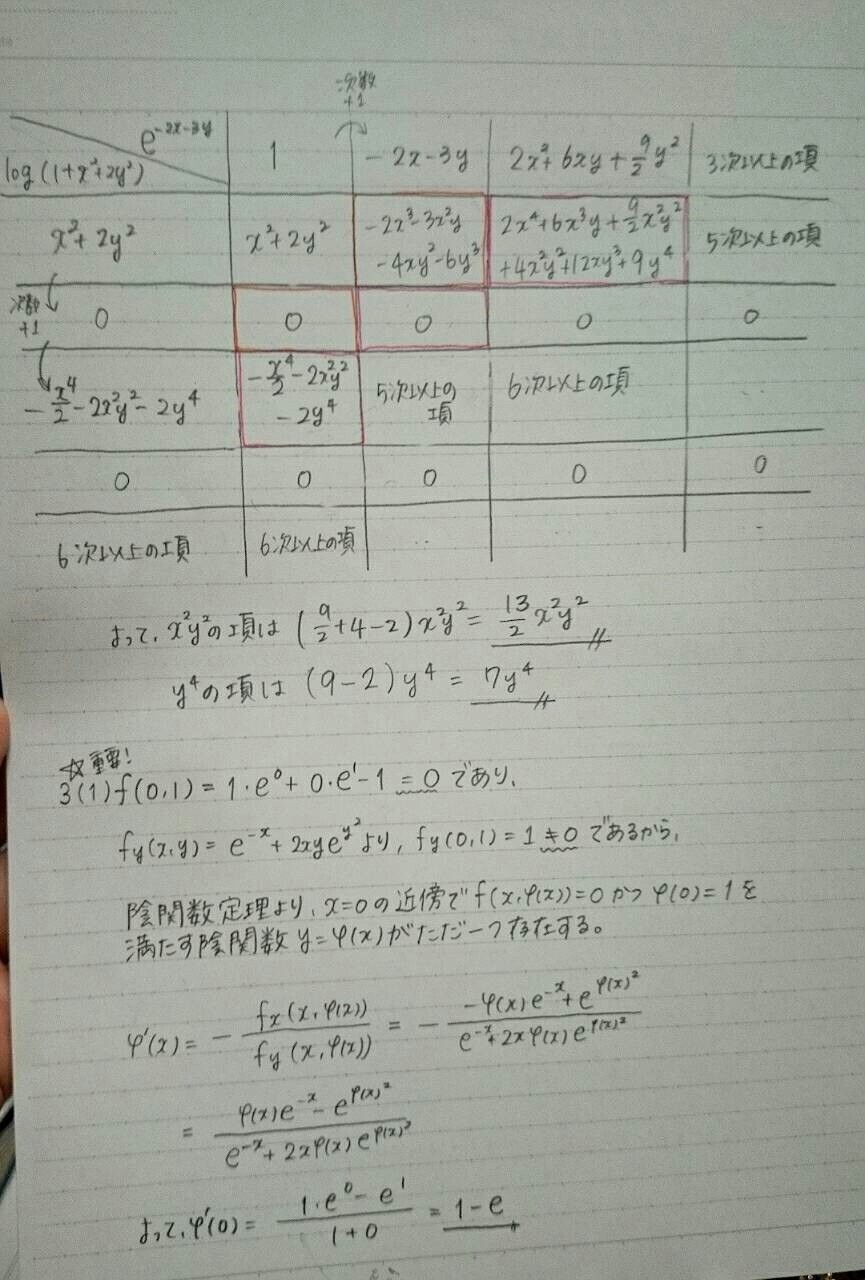 次数
+1
e^{-2x-3y}
log(1+x²+2y²)
1
-2x-3y
2x²+6xy+\frac{9}{2}y²
3次以上の項
x²+2y²
x²+2y²
-2x³-3x²y
-4xy²-6y³
2x⁴+6x³y+\frac{9}{2}x²y²
+4x²y²+12xy³+9y⁴
5次以上の項
次数
+1
0
0
0
0
0
-\frac{x⁴}{2}-2x²y²-2y⁴
-\frac{x⁴}{2}-2x²y²
-2y⁴
5次以上の
項
6次以上の項
0
0
0
0
0
6次以上の項
6次以上の項
よって、x²y²の項は (\frac{9}{2}+4-2)x²y² = \frac{13}{2}x²y²
y⁴の項は (9-2)y⁴ = 7y⁴
☆重要!
3(1) f(0,1) = 1·e⁰+0·e¹-1 = 0 であり、
fy(x,y) = e^{-x}+2xye^{y²} より, fy(0,1) = 1 ≠ 0 であるから、
陰関数定理より、x=0の近傍で f(x,φ(x))=0 かつ φ(0)=1 を
満たす陰関数 y=φ(x) がただ一つ存在する。
φ'(x) = -\frac{fx(x,φ(x))}{fy(x,φ(x))} = -\frac{-φ(x)e^{-x}+e^{φ(x)²}}{e^{-x}+2xφ(x)e^{φ(x)²}}
= \frac{φ(x)e^{-x}-e^{φ(x)²}}{e^{-x}+2xφ(x)e^{φ(x)²}}
よって、φ'(0) = \frac{1·e⁰-e¹}{1+0} = 1-e